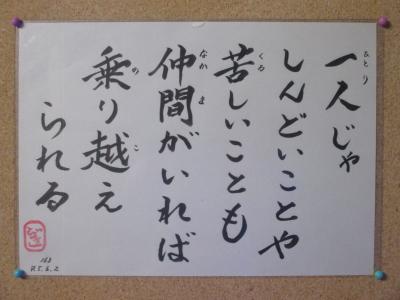 一人じゃ
しんどいことや
苦しいことも
仲間がいれば
乗り越え
られる
ひとり
くる
なかま
の
こ
163
R5.6.2